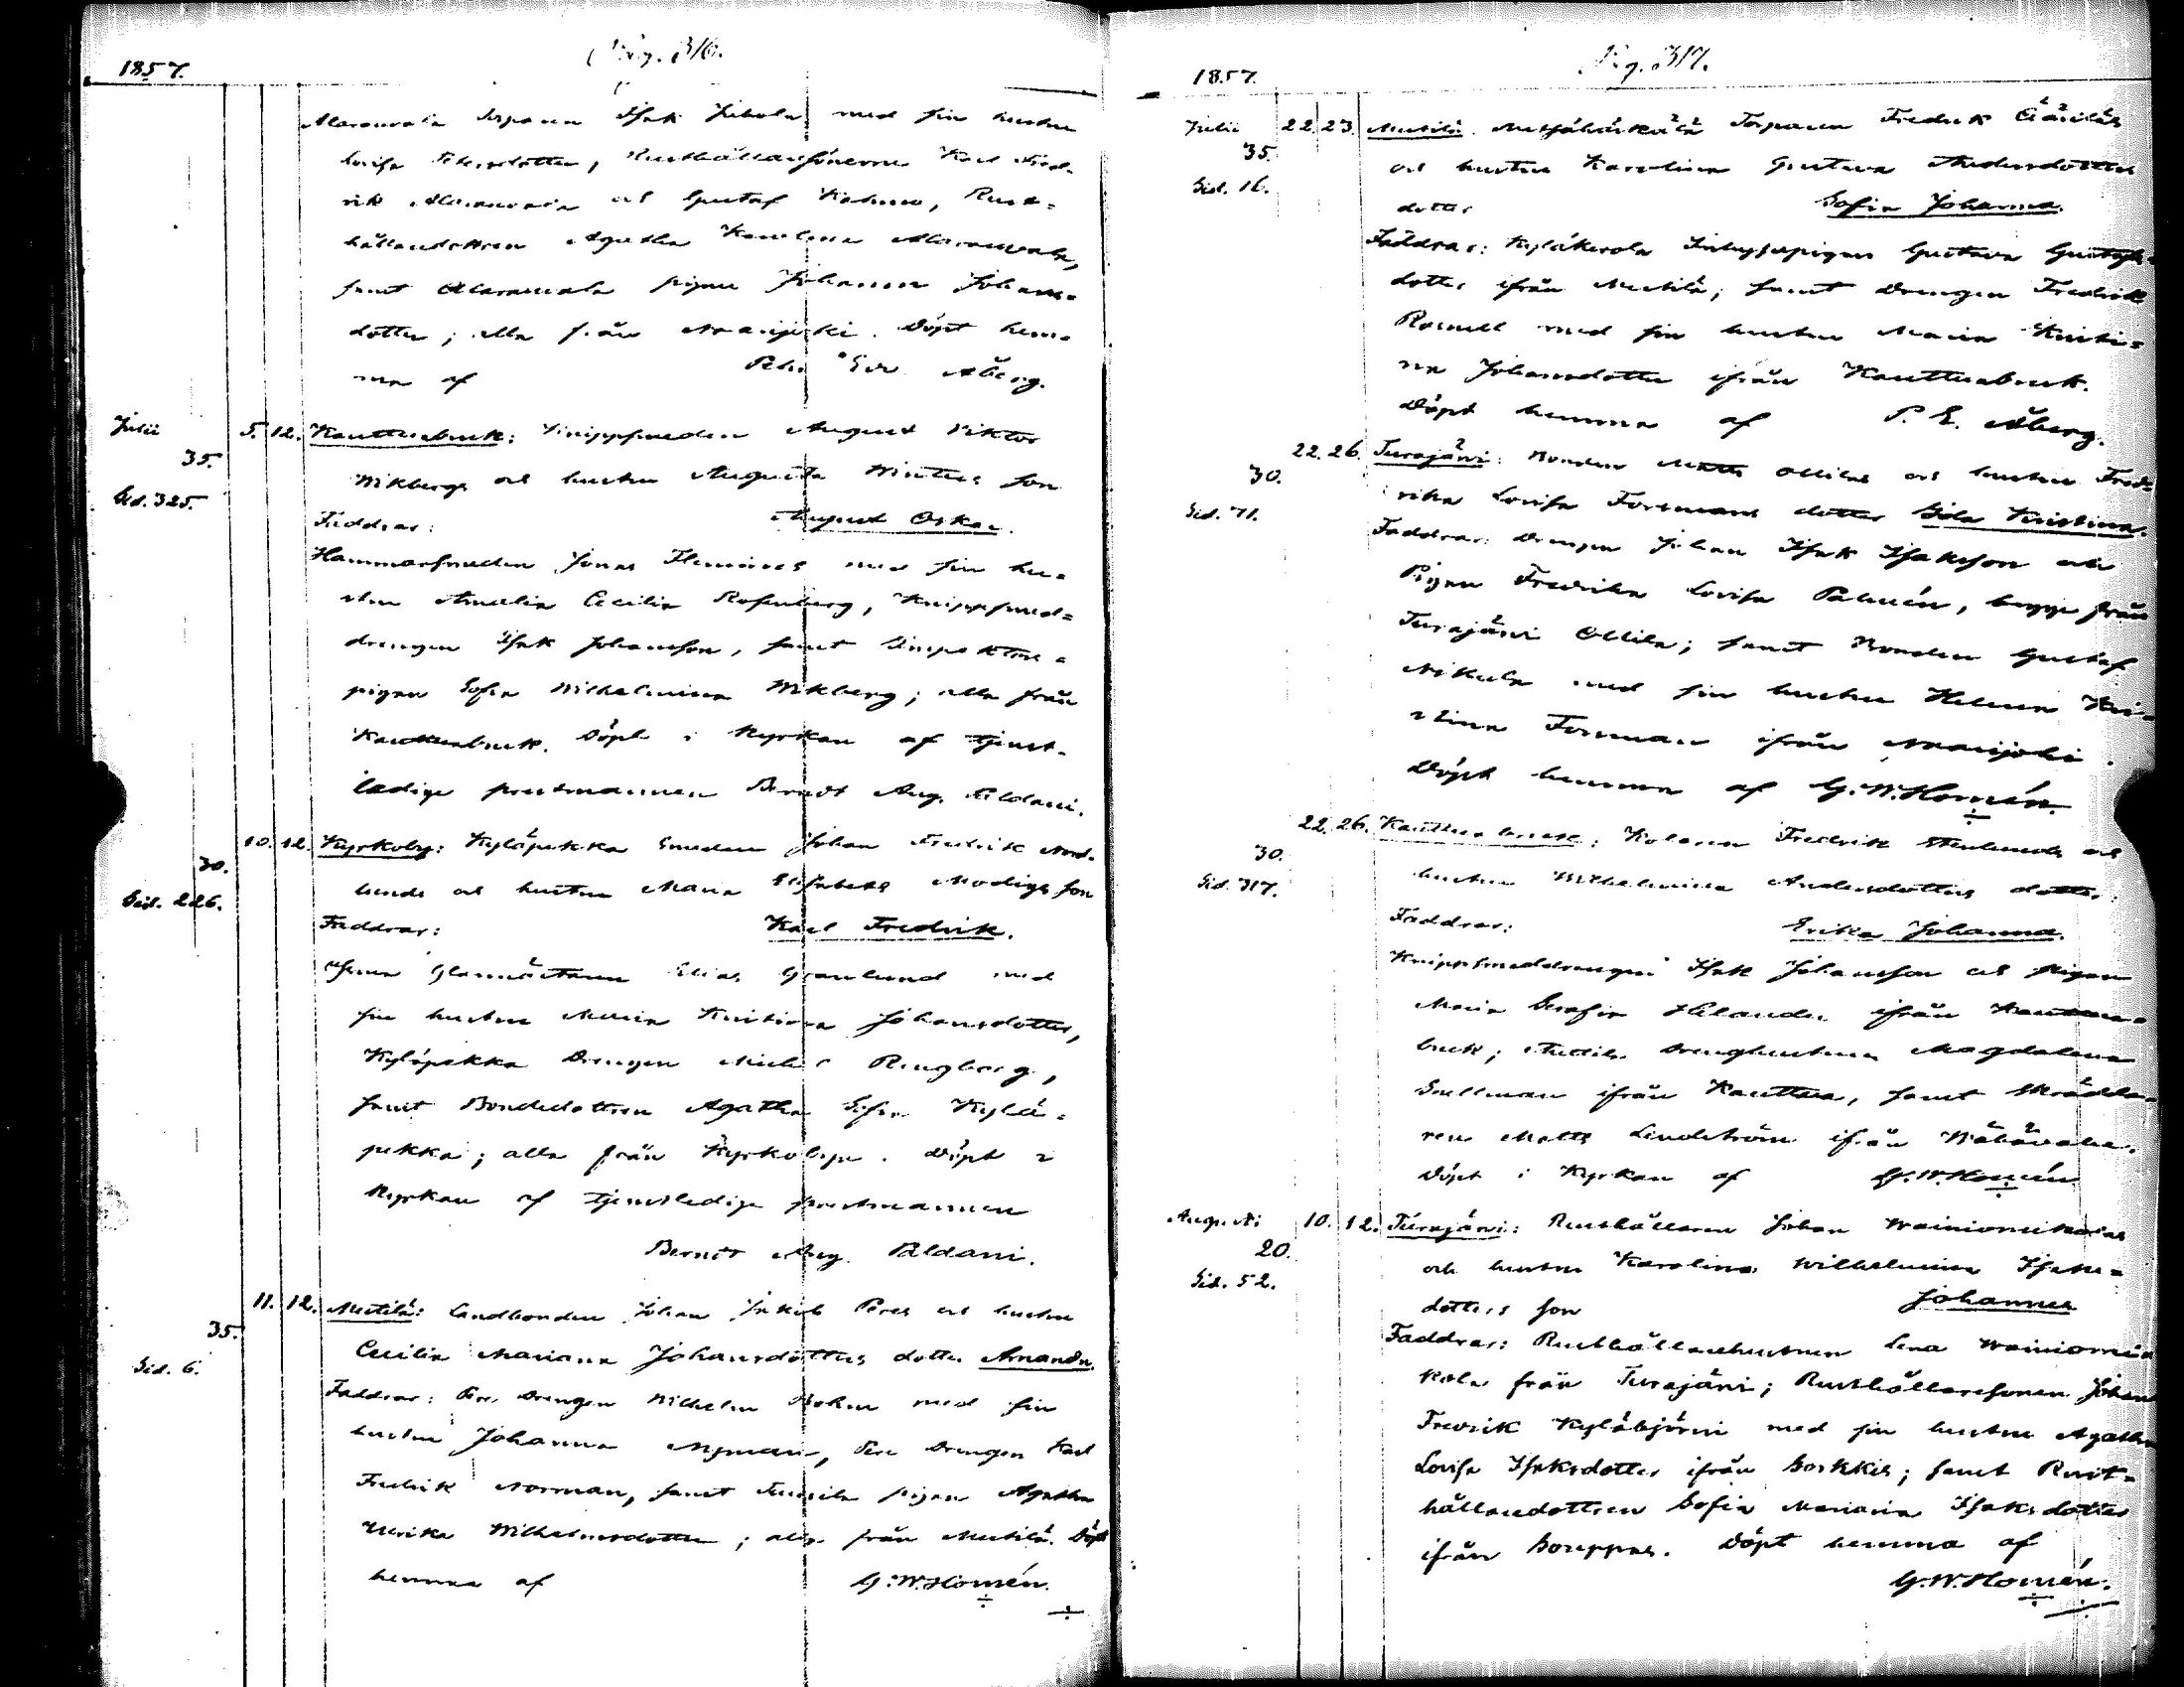 1857.
Pag. 316.
Torparen Isak Jubola med sin hustru
Lovisa dotter, Rusthållaresönerne Karl Fred-
rik och Gustaf Rust-
hållaredottren Agatha Karolina
samt pigan Johanna Johans-
dotter; alla från Naarijoki. Döpt hem-
ma af Åberg.
Julii 5. 12. Kauttuabruk: Knippsmeden August Viktor
35.
Wikbergs och hustru Augusta Winters son
Sid. 325.
Faddrar: August Oskar.
Hammarsmeden Jonas med sin hu-
stru Amalia Cecilia Rosenberg, Knippsmed-
drengen Isak Johansson, samt
pigan Sofia Wilhelmina Wikberg; alla från
Kauttuabruk. Döpt i Kyrkan af tjenst-
ledige prestmannen Berndt Aug. Paldani.
10. 12. Kyrkoby: Kyläpekka Smeden Johan Fredrik Nord-
30.
lunds och hustru Maria Elisabeth Modigs son
Sid. 226.
Faddrar: Karl Fredrik.
Elias Grönlund med
sin hustru Maria Kristina Johansdotter,
Kyläpekka Drengen Michel Ringberg,
samt Bondedottren Agatha Sofia Kylä-
pekka; alla från Kyrkobyn. Döpt i
Kyrkan af tjenstledige prestmannen
Berndt Aug. Paldani.
11. 12. Mutila: Landbonden Johan Jakob Peres och hustru
35.
Cecilia Mariana Johansdotters dotter Amanda.
Sid. 6.
Faddrar: Pere Drengen Wilhelm Bohm med sin
hustru Johanna Nyman, Pere Drengen Karl
Fredrik Norman, samt pigan Agatha
Ulrika Wilhelmsdotter; alla från Mutila. Döpt
hemma af G. W. Homén.
1857.
Pag. 317.
Julii 22. 23. Mutila. Torparen Fredrik
35.
och hustru Karolina Gustava Andersdotters
Sid. 16.
dotter Sofia Johanna.
Faddrar: Kyläkerola Inhysespigan Gustava Gustafs-
dotter ifrån Mutila; samt Drengen Fredrik
med sin hustru Maria Kristi-
na Johansdotter ifrån Kauttuabruk.
Döpt hemma af P. E. Åberg.
22. 26. Turajärvi: Bonden Matts Ollilas och hustru Fred-
30.
rika Lovisa Forsmans dotter Ida Kristina.
Sid. 71.
Faddrar: Drengen Johan Isak Isaksson och
Pigan Fredrika Lovisa Palmén, begge från
Turajärvi Ollila; samt Bonden Gustaf
Nikula med sin hustru Helena Kri-
stina Forsman ifrån Naarijoki.
Döpt hemma af G. W. Homén.
22. 26. Kauttuabruk: Kolaren Fredrik Stenlunds och
30.
hustru Wilhelmina Andersdotters dotter:
Sid. 317.
Faddrar: Erika Johanna.
Knippsmeddrengen Isak Johansson och Pigan
Maria Serafia Helander ifrån Kauttua-
bruk; Drenghustrun Magdalena
Snellman ifrån Kauttua, samt Skrädda-
ren Matts Lindström ifrån
Döpt i Kyrkan af G. W. Homén
Augusti 10. 12. Turajärvi: Rusthållaren Johan Wainiomikolas
20.
och hustru Karolina Wilhelmina Isaks-
Sid. 52.
dotters son Johannes
Faddrar: Rusthållarehustrun Lena Wainiomi-
kola från Turajärvi; Rusthållaresonen Johan
Fredrik med sin hustru Agatha
Lovisa Isaksdotter ifrån Sorkkis; samt Rust-
hållaredottren Sofia Mariana Isaksdotter
ifrån Döpt hemma af
G. W. Homén.